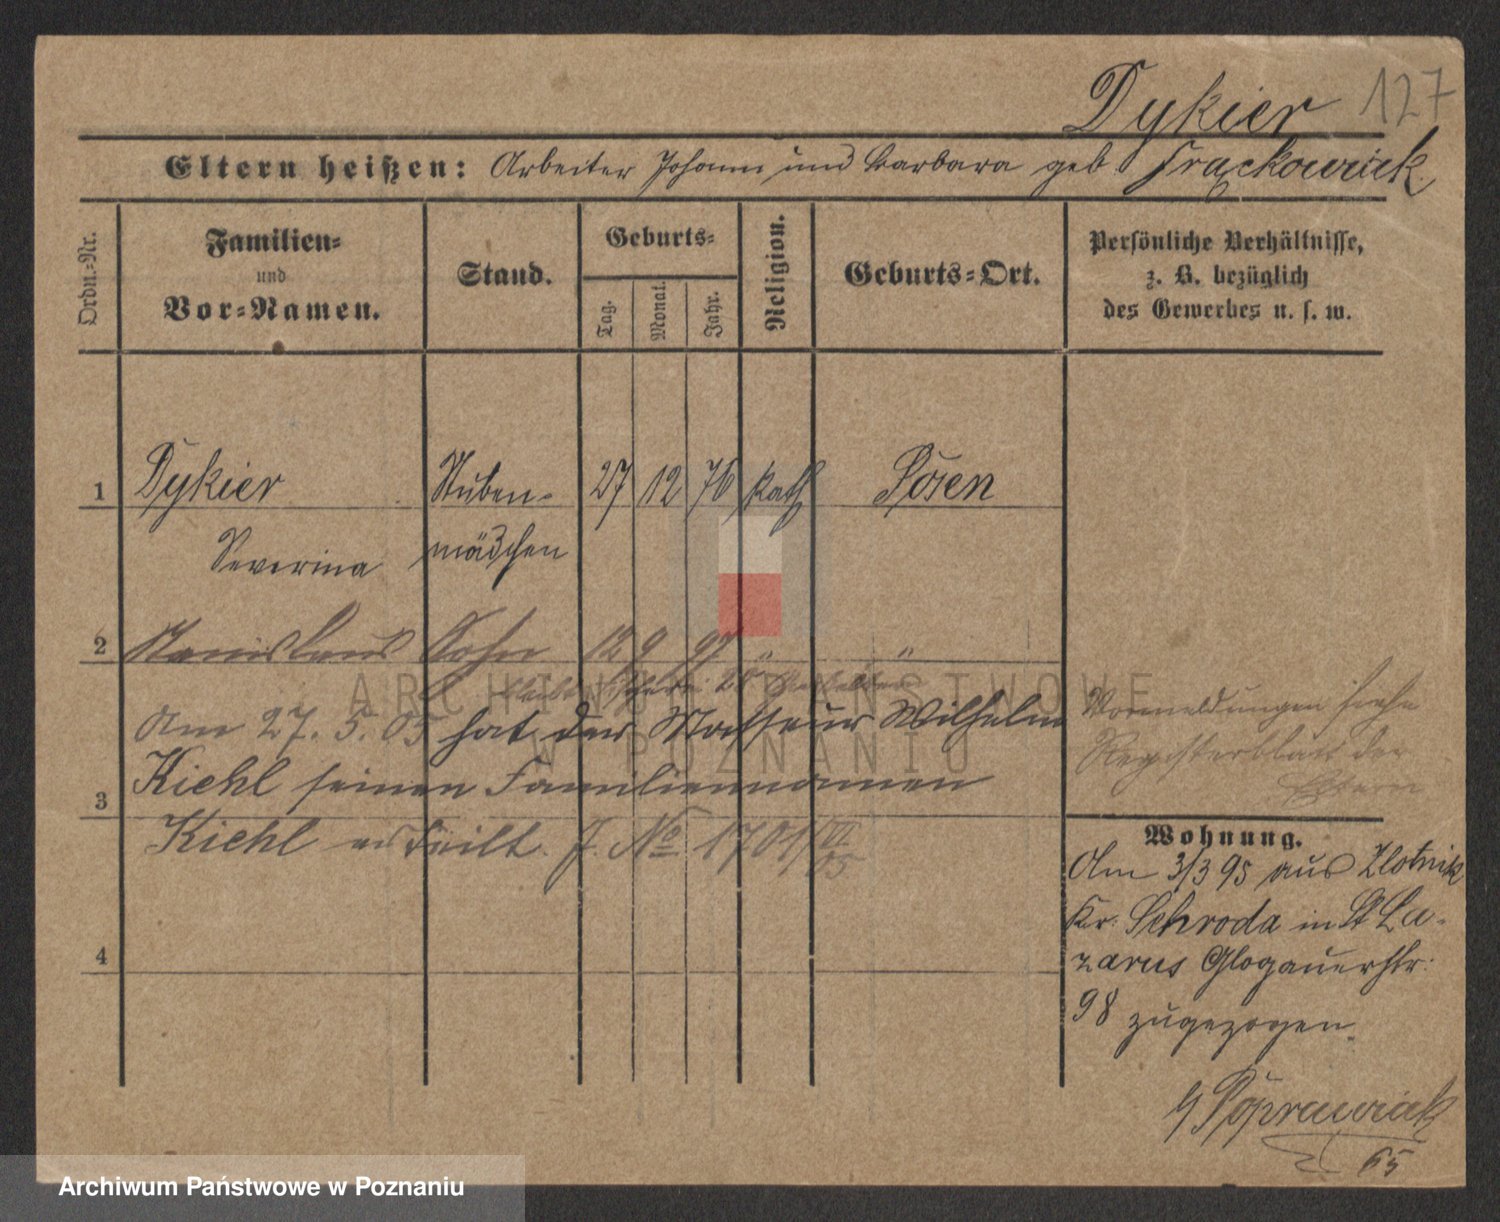 Dykier 127
Eltern heißen: Arbeiter Johann und Barbara geb Frąckowiak
Ordn.=Nr.
Familien=
und
Vor=Namen.
Stand.
Geburts=
Tag.
Monat.
Jahr.
Religion.
Geburts=Ort.
Persönliche Verhältnisse,
z. B. bezüglich
des Gewerbes u. s. w.
1 Dykier Stuben- 27 12 76 kath Posen
Severina mädchen
2 Stanislaus Sohn 12 9 97 " "
Am 27. 5. 05 hat der Masseur Wilhelm
Kiehl seinen Familiennamen
3
Kiehl erteilt. J. No 1701/VI 05
4
Vormeldungen siehe
Registerblatt der
Eltern
Wohnung.
Am 3/3 95 aus Zlotnik
Kr. Schroda in St La-
zarus Glogauerstr.
98 zugezogen.
Poprawiak
65
ARCHIWUM PAŃSTWOWE
W POZNANIU
Archiwum Państwowe w Poznaniu